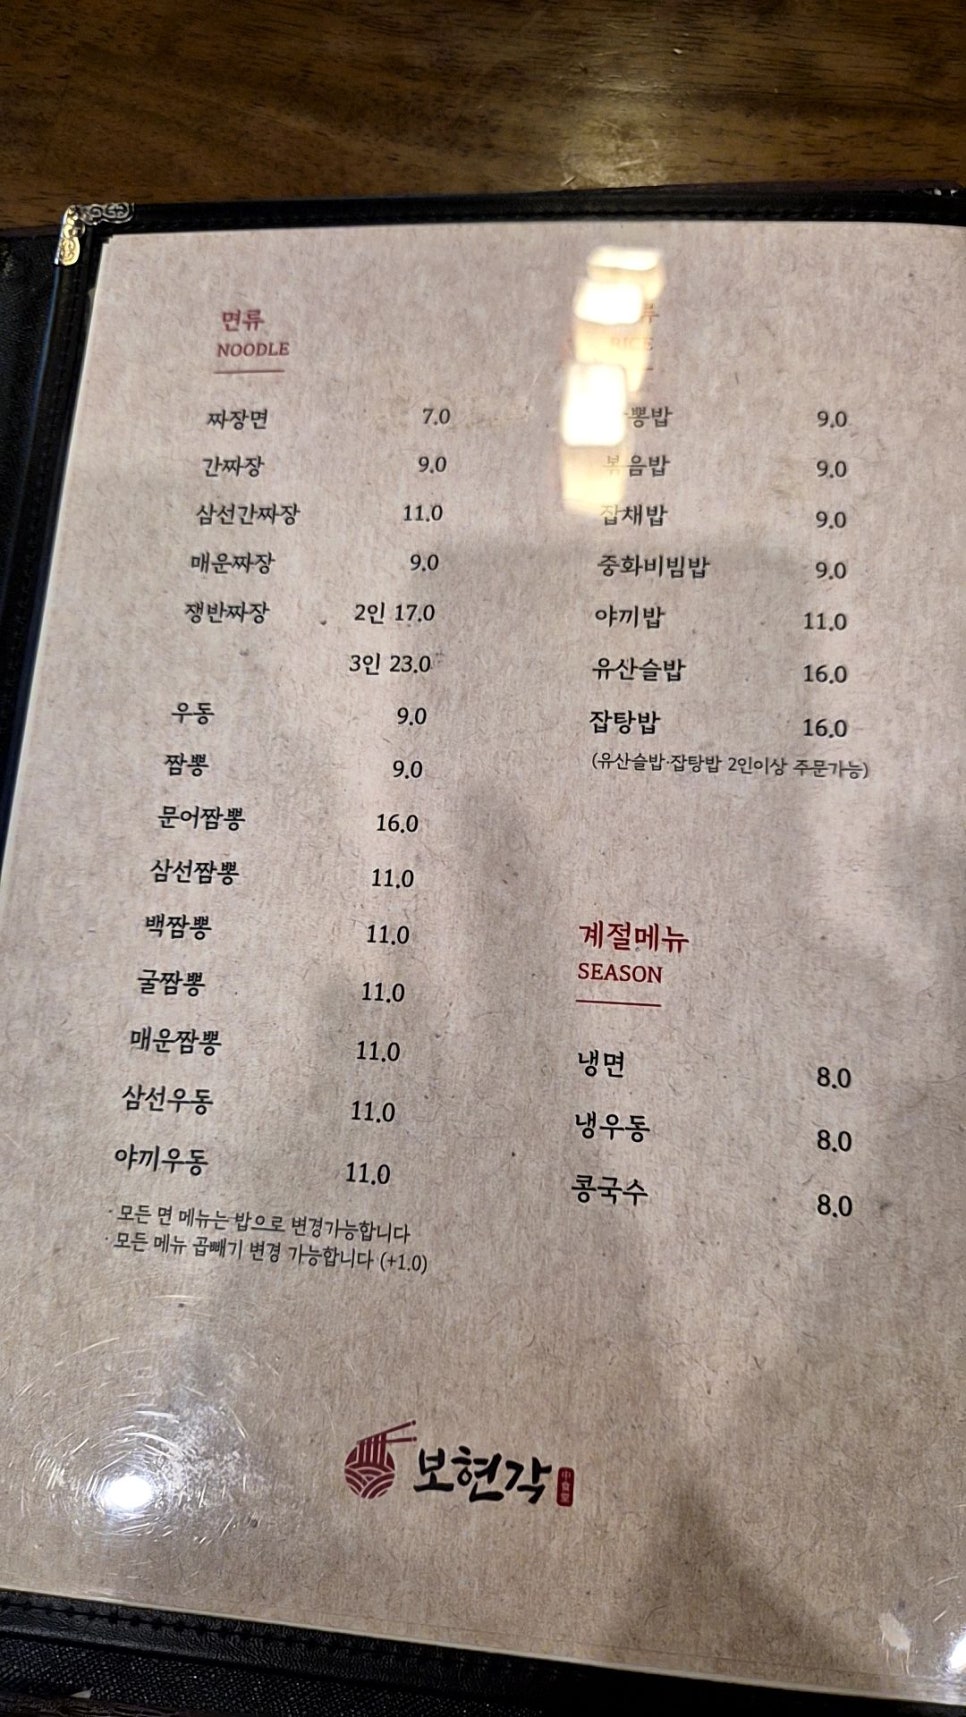 면류
NOODLE
짜장면 7.0
간짜장 9.0
삼선간짜장 11.0
매운짜장 9.0
쟁반짜장 2인 17.0
3인 23.0
우동 9.0
짬뽕 9.0
문어짬뽕 16.0
삼선짬뽕 11.0
백짬뽕 11.0
굴짬뽕 11.0
매운짬뽕 11.0
삼선우동 11.0
야끼우동 11.0
· 모든 면 메뉴는 밥으로 변경가능합니다
· 모든 메뉴 곱빼기 변경 가능합니다 (+1.0)
RICE
9.0
볶음밥 9.0
잡채밥 9.0
중화비빔밥 9.0
야끼밥 11.0
유산슬밥 16.0
잡탕밥 16.0
(유산슬밥·잡탕밥 2인이상 주문가능)
계절메뉴
SEASON
냉면 8.0
냉우동 8.0
콩국수 8.0
보현각
中食堂